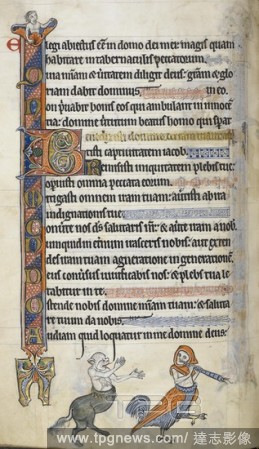 legi abiectus esse in domo dei mei: magis quam
habitare in tabernaculis peccatorum.
uia misericordiam & ueritatem diligit deus: gratiam & glo
riam dabit dominus. in eo.
on priuabit bonis eos qui ambulant in innocen
tia: domine uirtutum beatus homo qui sperat
Benedixisti domine terram tuam:
auertisti captiuitatem iacob.
Remisisti iniquitatem plebis tue:
operuisti omnia peccata eorum.
itigasti omnem iram tuam: auertisti ab ira
indignationis tue.
onuerte nos deus salutaris noster: & auerte iram a nobis.
unquid in eternum irasceris nobis: aut exten
des iram tuam a generatione in generationem.
eus conuersus uiuificabis nos: & plebs tua le
tabitur in te.
stende nobis domine misericordiam tuam: & saluta
re tuum da nobis.
udiam quid loquatur in me dominus deus:
www.tpgnews.com / 達志影像